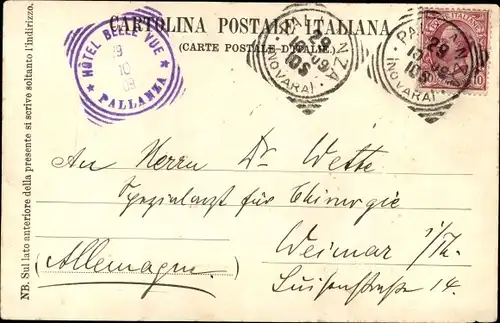 CARTOLINA POSTALE ITALIANA
(CARTE POSTALE D'ITALIE)
HÔTEL BELLE VUE
9
10
09
PALLANZA
PALLANZA
29
10 09
10S
(NOVARA)
PALLANZA
29
10 09
10S
(NOVARA)
10
NB. Sul lato anteriore della presente si scrive soltanto l'indirizzo.
An Herrn Dr Wette
Spezialarzt für Chirurgie
Weimar i/Th.
(Allemagne)
Luisenstraße 14.